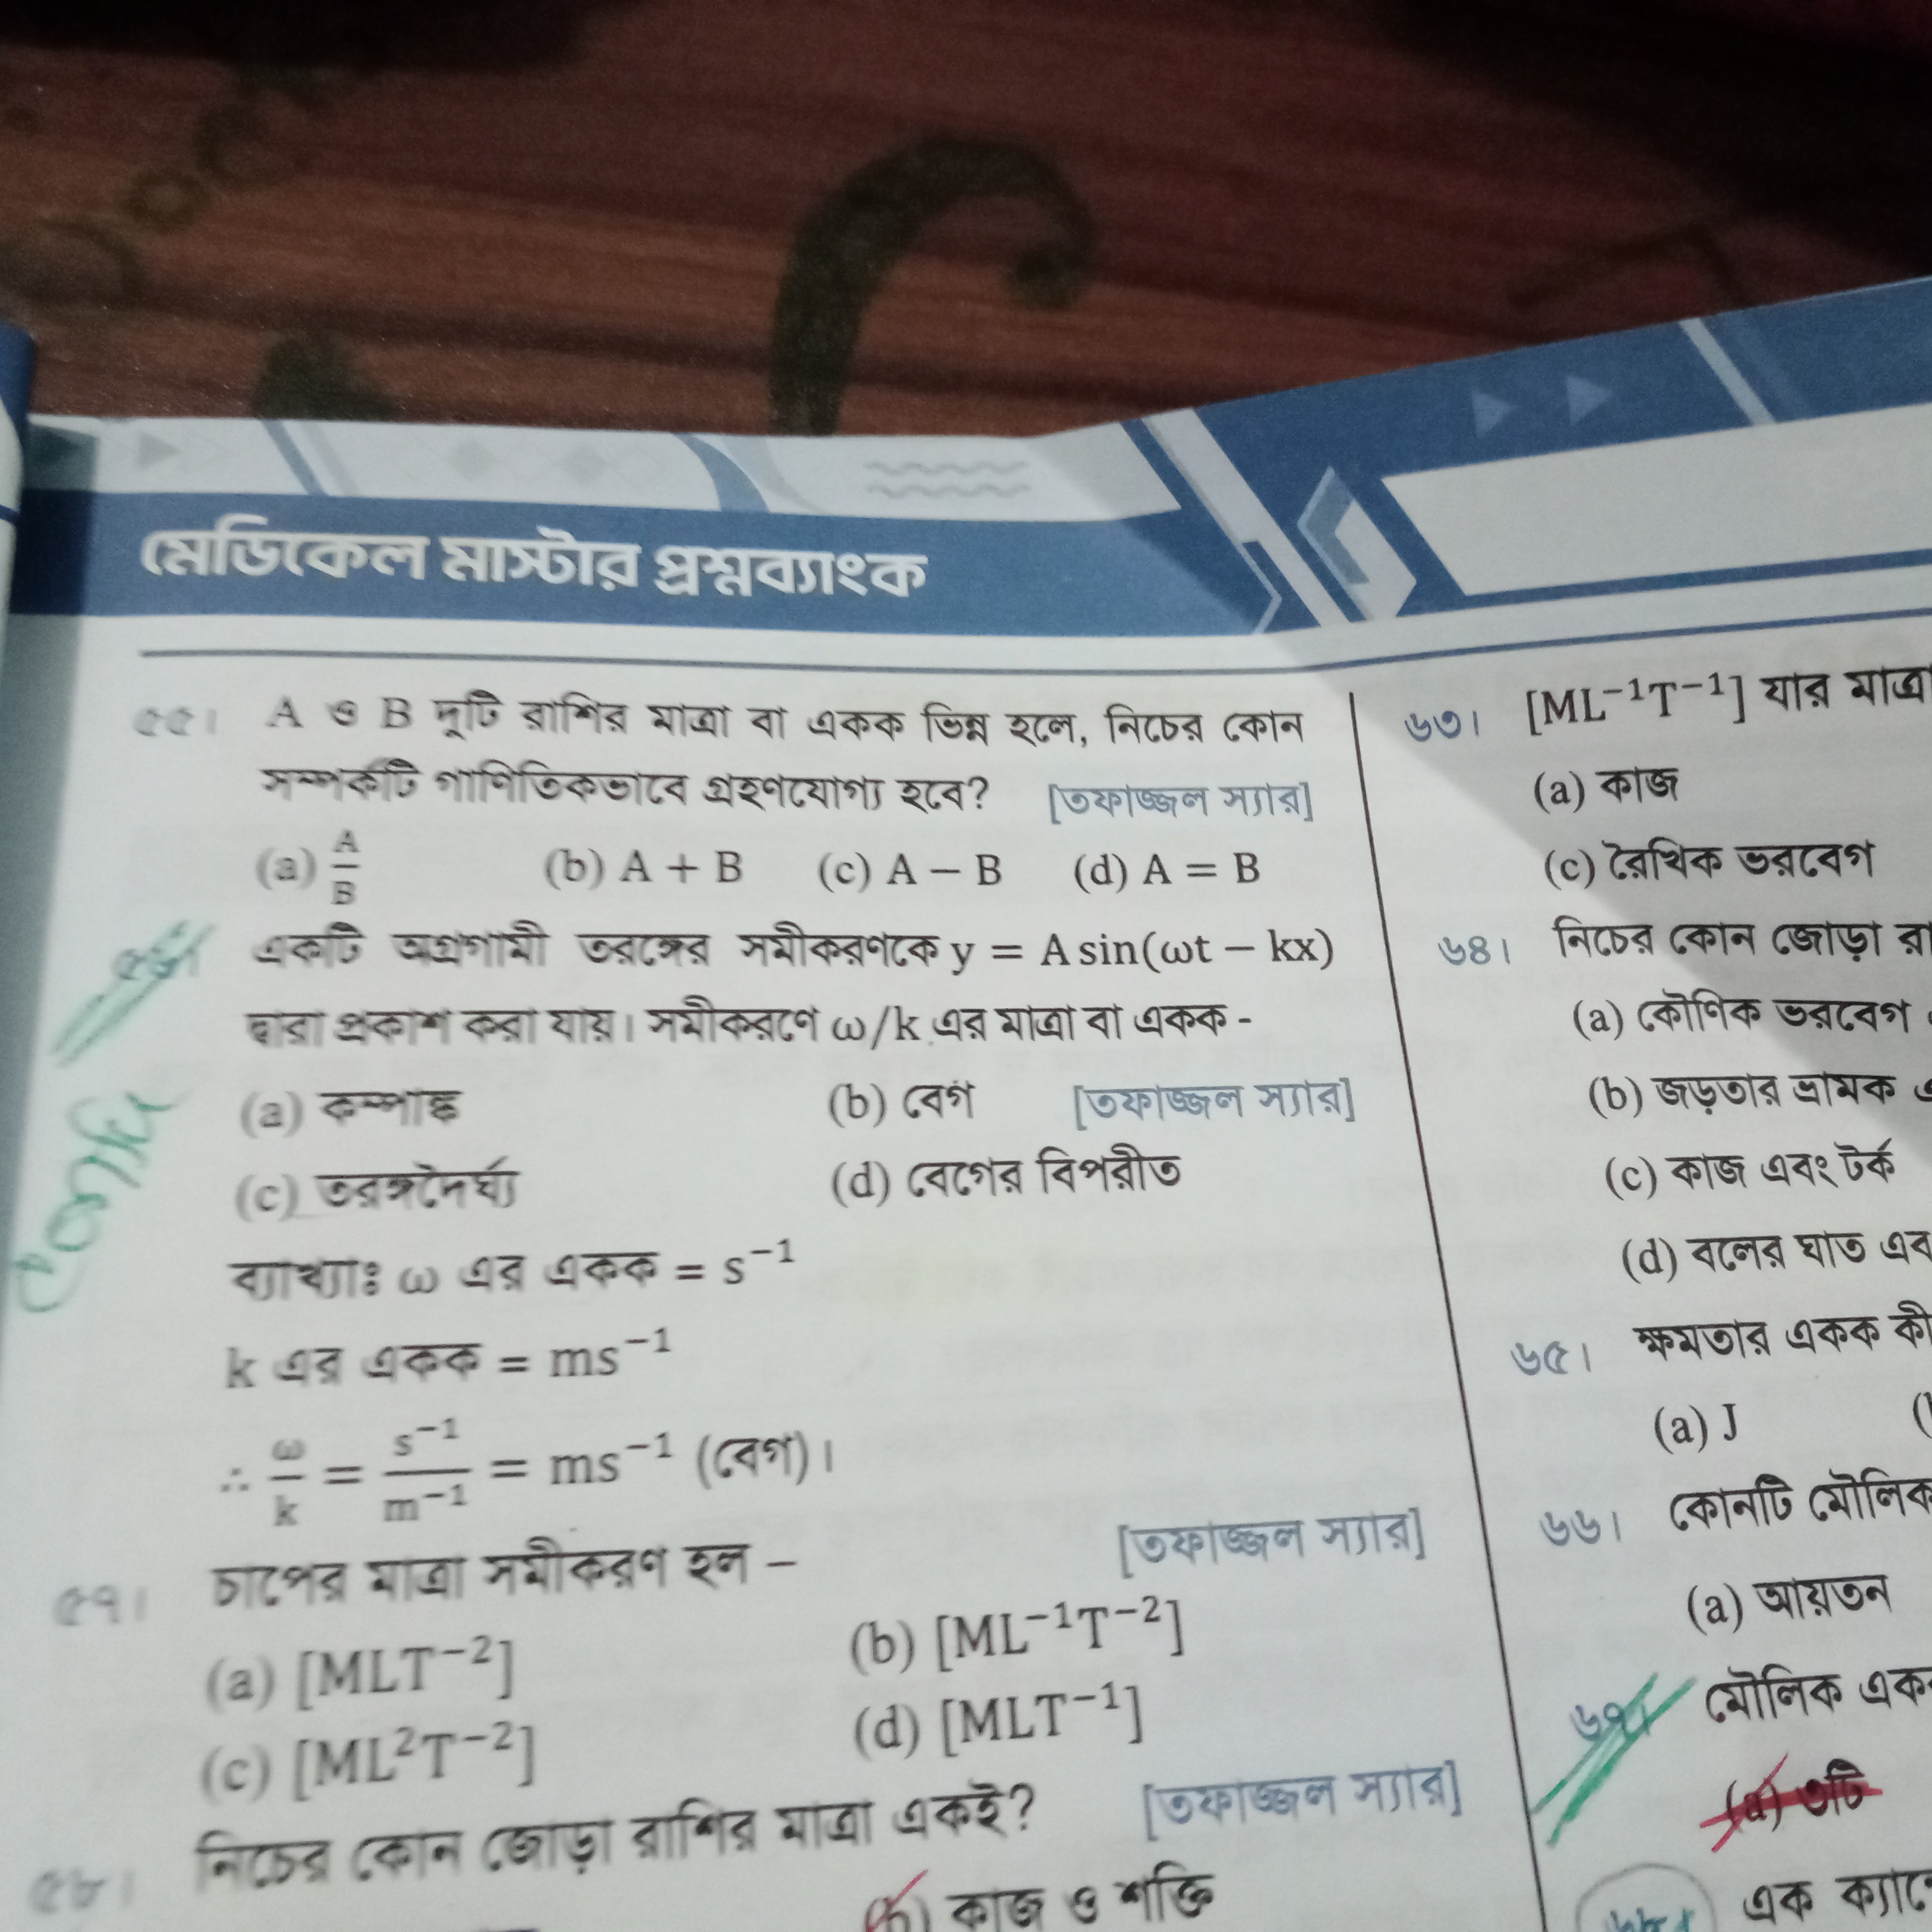 মেডিকেল মাস্টার প্রশ্নব্যাংক
৫৫। A ও B দুটি রাশির মাত্রা বা একক ভিন্ন হলে, নিচের কোন
সম্পর্কটি গাণিতিকভাবে গ্রহণযোগ্য হবে? [তফাজ্জল স্যার]
(a) A/B (b) A + B (c) A − B (d) A = B
৫৬। একটি অগ্রগামী তরঙ্গের সমীকরণকে y = A sin(ωt − kx)
দ্বারা প্রকাশ করা যায়। সমীকরণে ω/k এর মাত্রা বা একক -
(a) কম্পাঙ্ক (b) বেগ [তফাজ্জল স্যার]
(c) তরঙ্গদৈর্ঘ্য (d) বেগের বিপরীত
ব্যাখ্যাঃ ω এর একক = s⁻¹
k এর একক = ms⁻¹
∴ ω/k = s⁻¹/m⁻¹ = ms⁻¹ (বেগ)।
৫৭। চাপের মাত্রা সমীকরণ হল – [তফাজ্জল স্যার]
(a) [MLT⁻²] (b) [ML⁻¹T⁻²]
(c) [ML²T⁻²] (d) [MLT⁻¹]
৫৮। নিচের কোন জোড়া রাশির মাত্রা একই? [তফাজ্জল স্যার]
(b) কাজ ও শক্তি
৬৩। [ML⁻¹T⁻¹] যার মাত্রা
(a) কাজ
(c) রৈখিক ভরবেগ
৬৪। নিচের কোন জোড়া রা
(a) কৌণিক ভরবেগ
(b) জড়তার ভ্রামক এ
(c) কাজ এবং টর্ক
(d) বলের ঘাত এব
৬৫। ক্ষমতার একক কী
(a) J
৬৬। কোনটি মৌলিক
(a) আয়তন
৬৭। মৌলিক একক
(a) ৩টি
৬৮। এক ক্যান্ডে